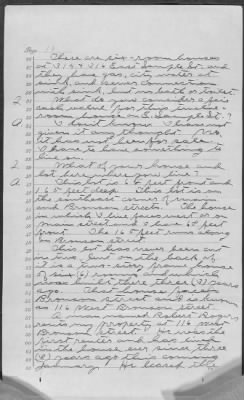 There are six-room houses
at 314 & 316 East Sample St. and
they have gas, city water at
sink, and sewer connection
with sink, but no bath or toilet.
Q. What do you consider a fair
cash value for this twelve-
room house on E. Sample St.?
A. I don't know. I have not
given it any thought. No,
it has not been for sale.
I have to have something to
live on.
Q. What of your house and
lot here where you live?
A. This lot is 65 feet front and
165 feet deep. This lot is on
the southwest corner of
and Bronson streets. The house
in which I live faces west or on
street and I have 65 feet
front. The 165 feet runs along
on Bronson street.
This lot has never been cut
in two, but on the back of
it is a two-story frame house
of six (6) rooms and which
was built there three (3) years
ago. That house faces
Bronson street and is known
as 116 West Bronson street.
A man named Robert Rogers
rents my property at 116 West
Bronson street. He was the
first renter and has been
in the house ever since three
(3) years ago this coming
January. He leased the